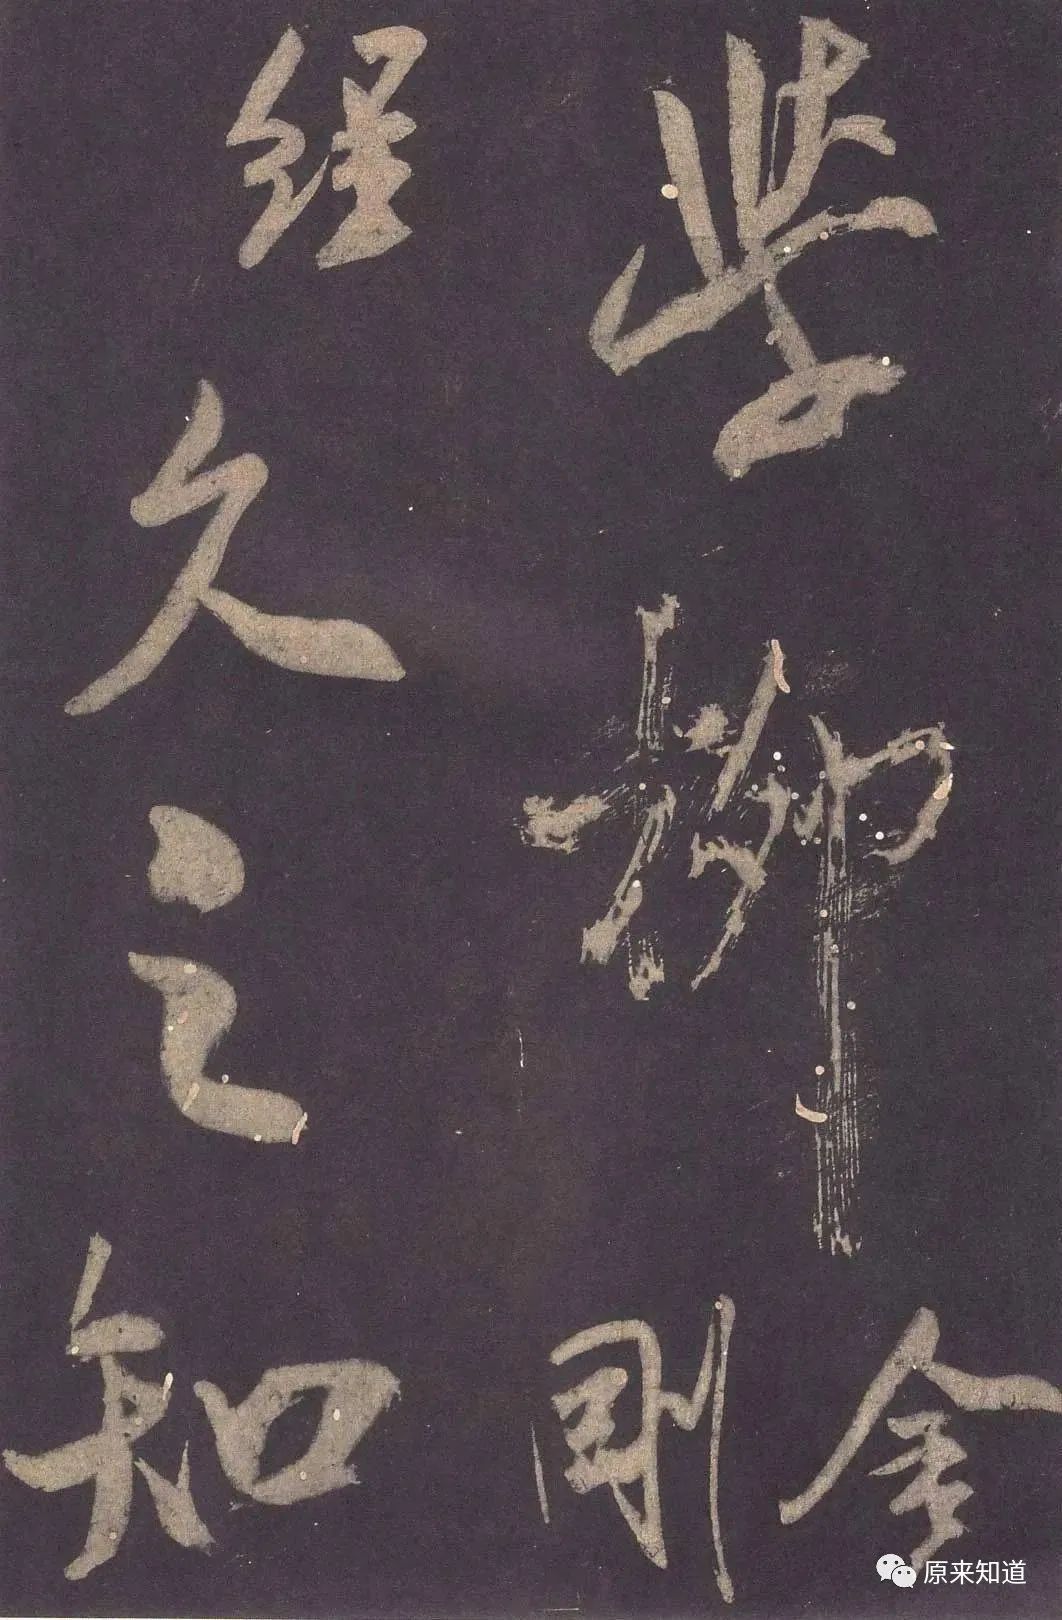 學柳
金剛
經久之知
原来知道